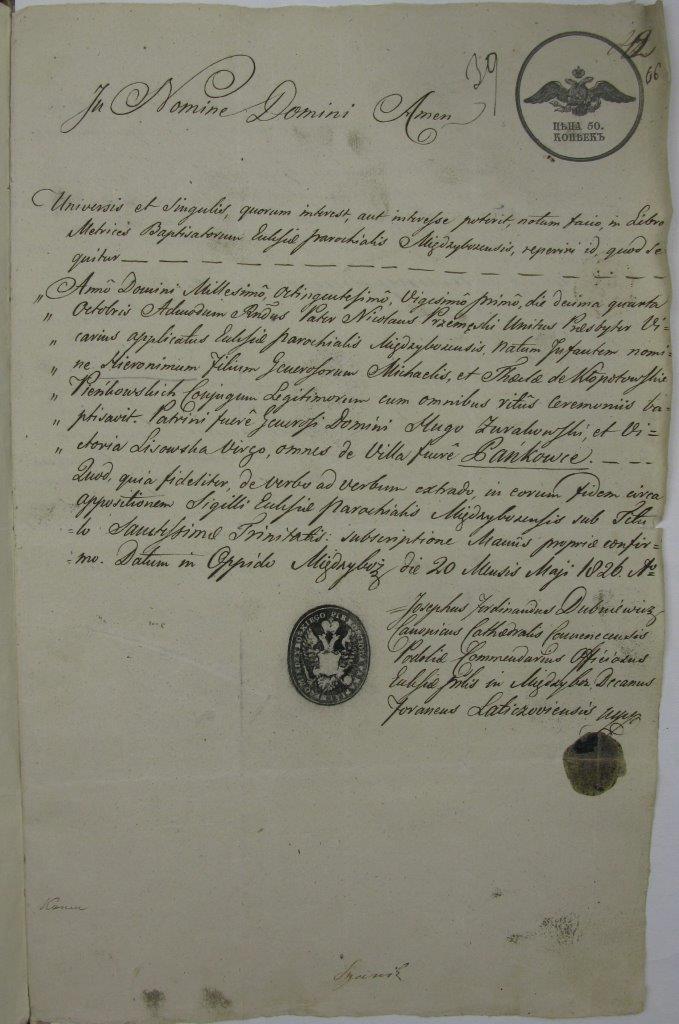 42
39
66
ЦѢНА 50.
КОПѢЕКЪ
In Nomine Domini Amen
Universis et Singulis, quorum interest, aut interesse poterit, notum facio, in Libro
Metrices Baptisatorum Ecclesiæ parochialis Międzybozensis, reperiri id, quod se-
quitur
„ Annô Domini Millesimô, Octingentesimô, Vigesimô primô, die decima quarta
„ Octobris Admodum Rndus Pater Nicolaus Przemęski Unitus Præsbyter Vi-
„ carius applicatus Ecclesiæ parochialis Międzybozensis, natum Infantem nomi-
„ ne Hieronimum Filium Generosorum Michaelis, et Theclæ de Kłopotowskie
„ Pieńkowskich Conjugum Legitimorum cum omnibus ritus ceremoniis ba-
„ ptisavit. Patrini fuerê Generosi Domini Hugo Zurakowski, et Vi-
„ ctoria Lisowska Virgo, omnes de Villa fuerê Pańkowce.
Quod, quia fideliter, de verbo ad verbum extrado, in eorum fidem circa
appositionem Sigilli Ecclesiæ Parochialis Międzybozensis sub Titu-
-lo Sanctissimæ Trinitatis: subscriptione Manûs propriæ confir-
-mo. Datum in Oppido Międzyboż die 20 Mensis Maji 1826 Ao
Josephus Ferdinandus Dubniewicz
Canonicus Cathedralis Camenecensis
Podoliæ Commendarius Officiosus
Ecclesiæ in Międzyboz Decanus
Foraneus Laticzoviensis mpp